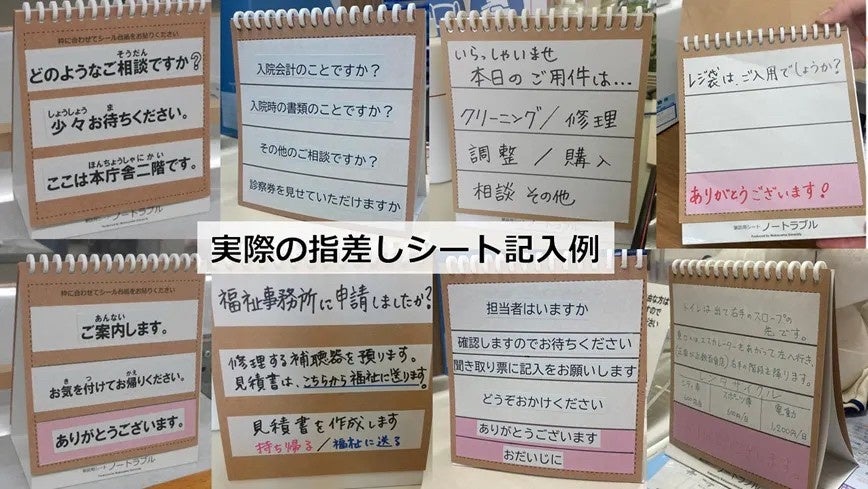 枠に合わせてシール台紙をお貼りください
そうだん
どのようなご相談ですか?
しょうしょう ま
少々お待ちください。
ほんちょうしゃにかい
ここは本庁舎二階です。
ノートラブル
入院会計のことですか?
入院時の書類のことですか?
その他のご相談ですか?
診察券を見せていただけますか
いらっしゃいませ
本日のご用件は…
クリーニング/修理
調整/購入
相談 その他
ノートラブル
レジ袋は、ご入用でしょうか?
ありがとうございます!
ノートラブル
実際の指差しシート記入例
枠に合わせてシール台紙をお貼りください
あんない
ご案内します。
き つ かえ
お気を付けてお帰りください。
ありがとうございます。
ノートラブル
福祉事務所に申請しましたか?
修理する補聴器を預ります。
見積書は、こちらから福祉に送ります。
見積書を作成します
持ち帰る/福祉に送る
担当者はいますか
確認しますのでお待ちください
聞き取り票に記入をお願いします
どうぞおかけください
ありがとうございます
おだいじに
トイレは出て右手のスロープの
先です。
レンタサイクル
電動
1,200円/日
ノートラブル